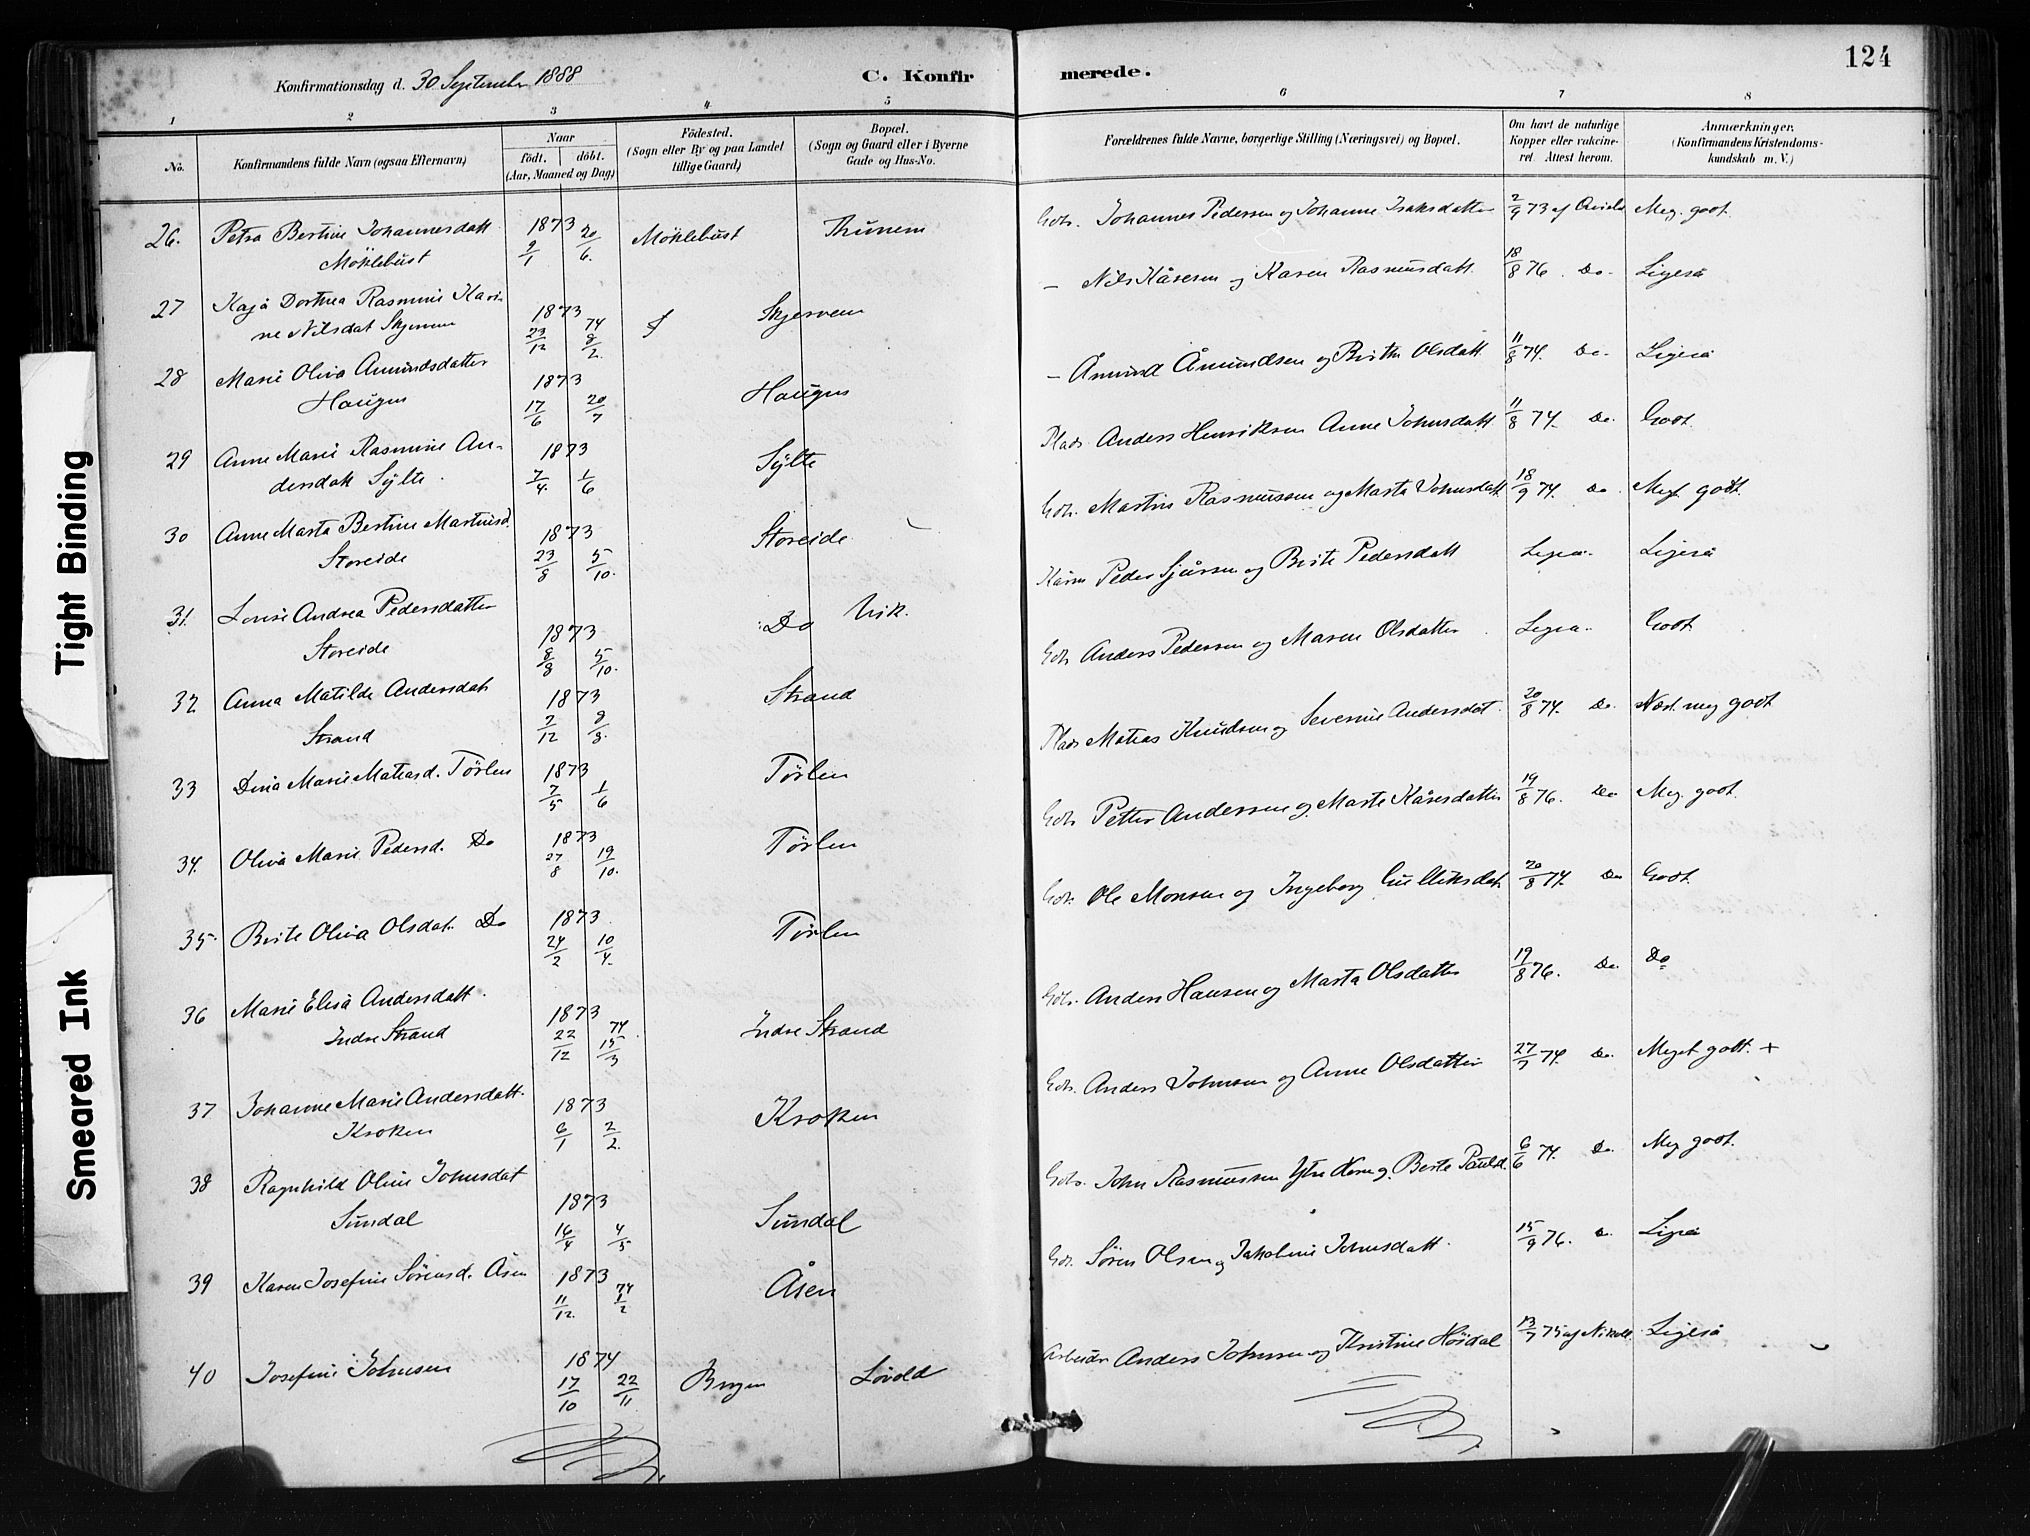 124
Konfirmationsdag d. 30 September 1888
C. Konfir
merede.
1 2 3 4 5 6 7 8
No.
Konfirmandens fulde Navn (ogsaa Efternavn)
Naar
født. døbt.
(Aar, Maaned og Dag)
Födested.
(Sogn eller By og paa Landet
tillige Gaard)
Bopæl.
(Sogn og Gaard eller i Byerne
Gade og Hus-No.
Forældrenes fulde Navne, borgerlige Stilling (Næringsvei) og Bopæl.
Om havt de naturlige
Kopper eller vakcine-
ret. Attest herom.
Anmærkninger.
(Konfirmandens Kristendoms-
kundskab m. V.)
26. Petra Bertine Johannesdatt 1873 2/1 20/6. Möklebust Thunem Gdr. Johannes Pedersen og Johanne Isaksdatter 2/9 73 af Meg. godt.
Möklebust
27 Kaja Dorthea Rasmine Kari- 1873 23/12 74 8/2 Skjerven – Nils Kåresen og Karen Rasmusdatt. 18/8 76. Do. Ligeså
ne Nilsdat
28 Marie Oliva Amundsdatter 1873 17/6 20/7 Haugen – Åmund Åmundsen og Berthe Olsdatt. 11/8 74. Do. Ligeså
Haugen
29 Anne Marie Rasmine An- 1873 7/4. 1/6 Sylte Plads Anders Henriksen Anne Johnsdatt 11/8 74. Do. Godt.
dersdatt Sylte.
30 Anne Marta Bertine Martinsd. 1873 23/8 5/10. Storeide Gdr. Martin Rasmussen og Marta Johnsdatt 18/9 74. Do. Meget godt.
Storeide
31. Lovise Andrea Pedersdatter 1873 8/8 5/10. Do Vik. Peder Sjursen og Berte Pedersdatt Ligeså
Storeide
32 Anna Matilde Andersdat 1873 7/12 8/8. Strand Gdr Anders Pedersen og Maren Olsdatter Godt.
Strand
33 Dina Marie Matiasd. Törlen 1873 7/5 1/6 Törlen Plads Matias Knudsen og Severine Andersdat. 20/8 74. Do. Næst. meg godt
34. Oliva Marie Pedersd. Do 1873 27/8 19/10. Törlen Gdr Petter Andersen og Marte Kåresdatter 19/8 76. Do Meg. godt.
35. Berte Oliva Olsdat. Do 1873 24/2 10/4. Törlen Gdr. Ole Monsen og Ingeborg Gulliksdat 20/8 74. Do Godt.
36 Marie Elisa Andersdatt. 1873 22/12 74 15/3 Indre Strand Gdr. Anders Hansen og Marta Olsdatter 19/8 76. Do. Do
Indre Strand
37 Johanne Marie Andersdatt. 1873 6/1 2/2. Kroken Gdr. Anders Johnsen og Anne Olsdatter 27/7 74. Do. Meget godt. +
Kroken
38 Ragnhild Oline Johnsdat 1873 16/4 4/5 Sundal Gdr. John Rasmussen og Berte Pauld. 6/6 74. Do. Meg godt.
Sundal
39 Karen Josefine Sörensd. Åsen 1873 11/12. 74 1/2 Åsen Gdr. Sören Olsen og Jakobine Johnsdatt. 15/9 76. Ligeså
40 Josefine Johnsen 1874 17/10 22/11 Bergen Lövold Arbeider Anders Johnsen og Kristine Höidal 13/7 75 af Ligeså
Tight Binding
Smeared Ink